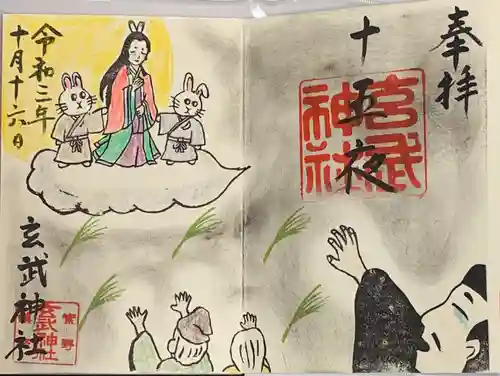 奉拝
十五夜
玄武神社
令和二年
十月十六日
玄武神社
紫野
玄武神社